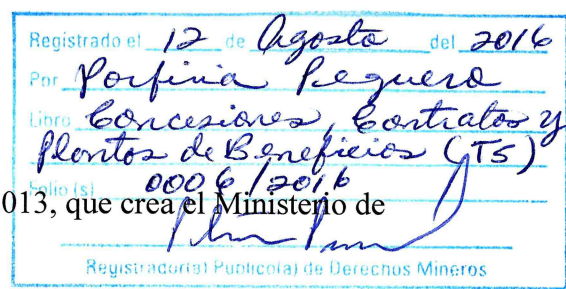 Registrado el 12 de Agosto del 2016
Por Porfiria Peguero
Libro Concesiones, Contratos y
Plantos de Beneficios (TS)
Folio (s) 0006/2016
013, que crea el Ministerio de
Registrador(a) Publico(a) de Derechos Mineros